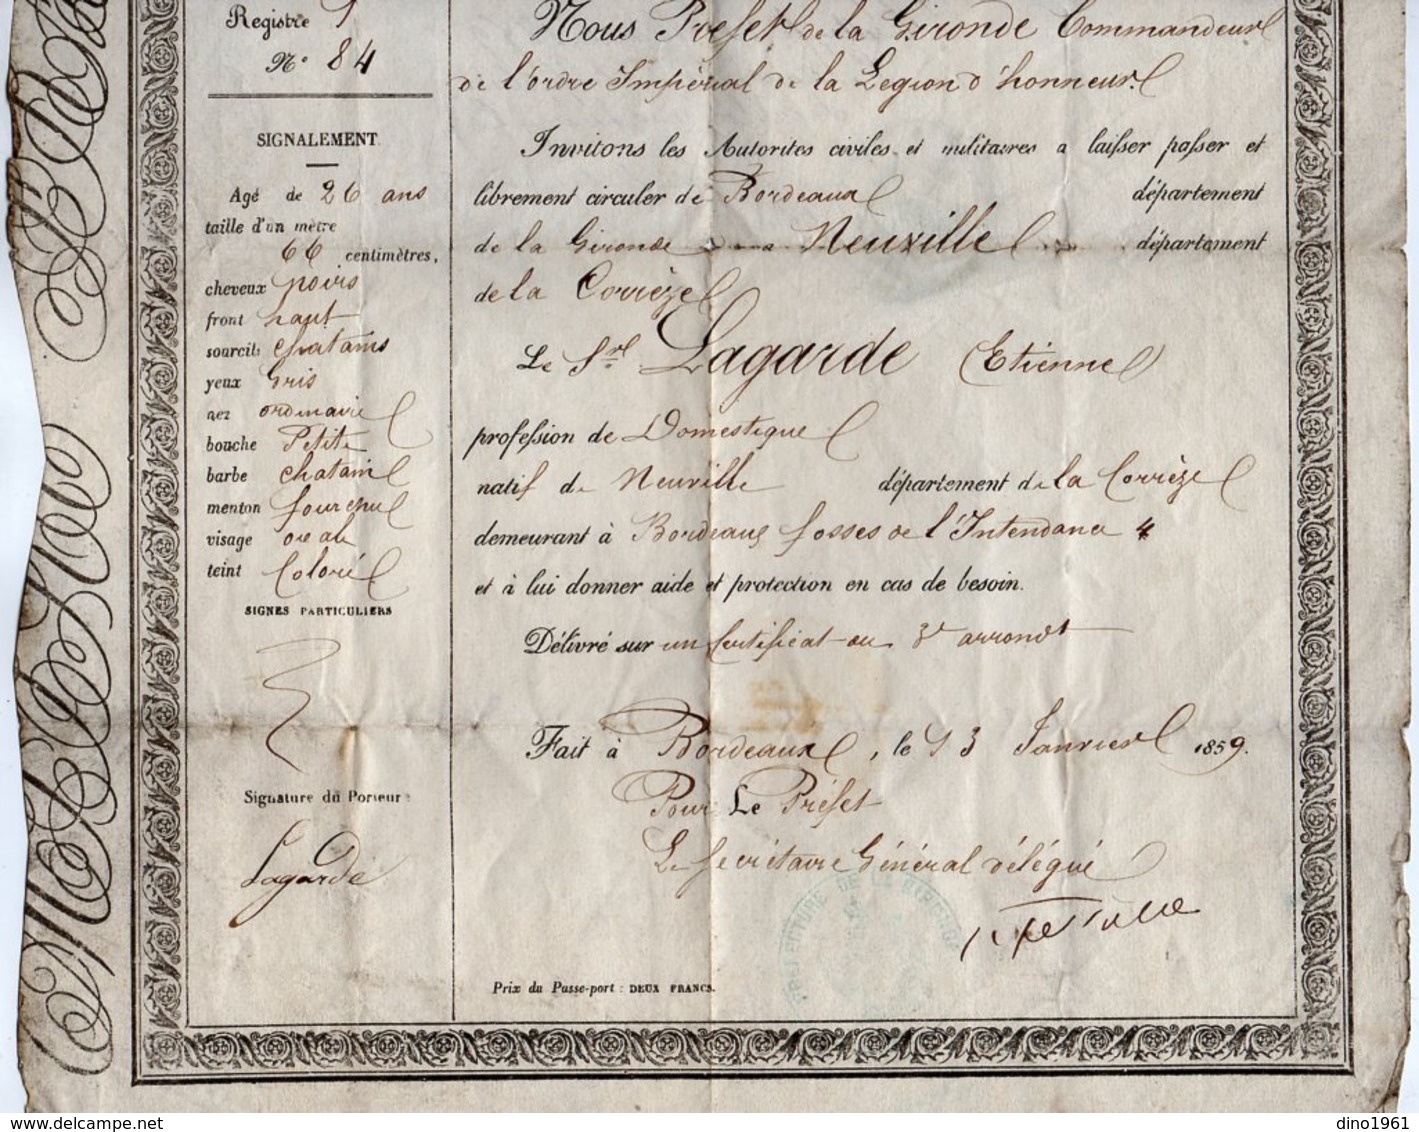 Registre 1
N° 84
SIGNALEMENT
Agé de 26 ans
taille d'un mètre
66 centimètres,
cheveux noirs
front haut
sourcils chatains
yeux Gris
nez ordinaire
bouche Petite
barbe chatain
menton fourchu
visage ovale
teint Coloré
SIGNES PARTICULIERS
Signature du Porteur :
Lagarde
Nous Préfet de la Gironde Commandeur
de l'ordre Impérial de la Legion d'honneur.
Invitons les Autorités civiles et militaires à laisser passer et
librement circuler de Bordeaux département
de la Gironde à Neuville département
de la Corrèze
Le Sr. Lagarde (Etienne)
profession de Domestique
natif de Neuville département de la Corrèze
demeurant à Bordeaux fossés de l'Intendance 4
et à lui donner aide et protection en cas de besoin.
Délivré sur un Certificat du 3e arrondt
Fait à Bordeaux, le 13 Janvier 1859.
Pour Le Préfet
Le Secrétaire Général délégué
PRÉFECTURE DE LA GIRONDE
Prix du Passe-port : DEUX FRANCS.
delcampe.net
dino1961